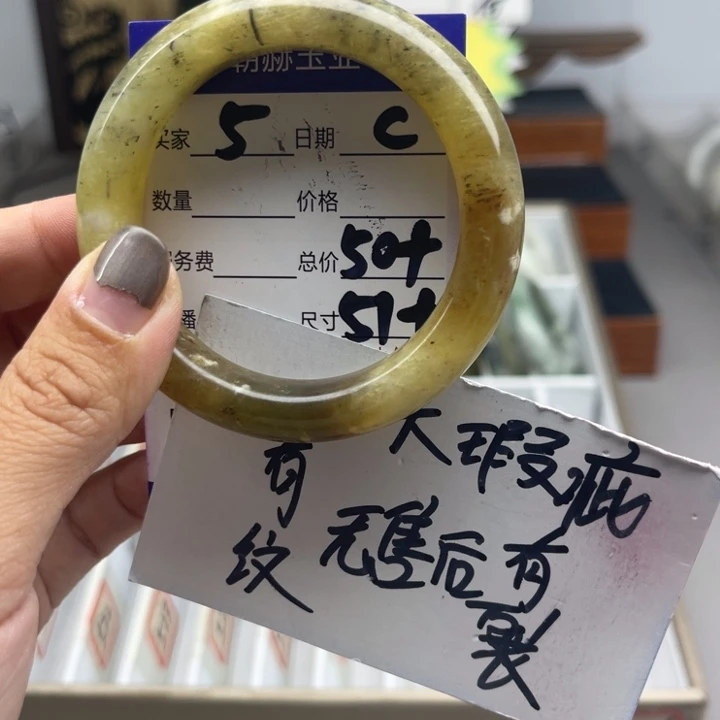 朝赫玉业
买家 5 日期 C
数量 价格
服务费 总价 50+
播 尺寸 51+
大瑕疵
有纹
无售后有裂